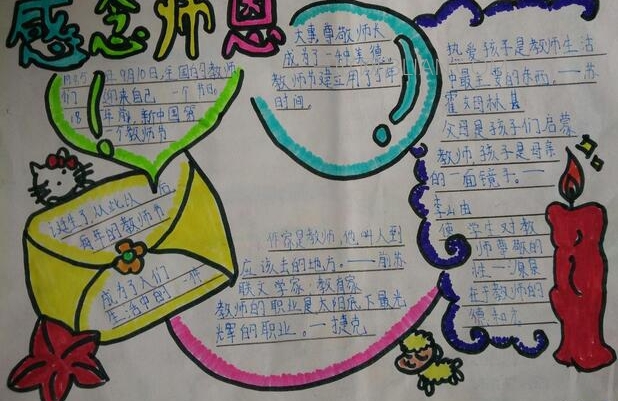 感念师恩
1985年9月10日,中国的教师
们 迎来自己 一个节日。
年届,新中国第
一个教师节
诞生了,从此以后,
每年的教师节
成为了人们
生活中的一件
大事尊敬师长
成为了一种美德。
教师节建立用了5年
时间。
作家是教师,他叫人到
应该去的地方。——前苏
联文学家、教育家
教师的职业是太阳底下最光
辉的职业。——捷克
热爱孩子是教师生活
中最主要的东西。——苏
霍姆林
父母是孩子们启蒙
教师,孩子是母亲
的一面镜子。——
使 学生对教
师尊敬的
唯一源泉
在于教师的
德和才。